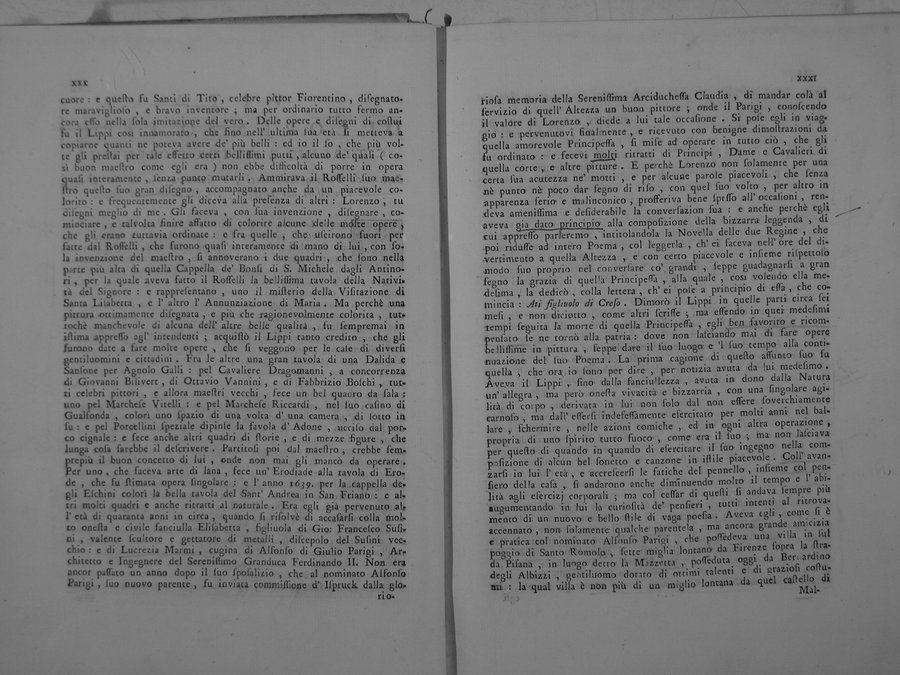 xxx
cuore : e questo fu Santi di Tito , celebre pittor Fiorentino , disegnato-
re maraviglioso , e bravo inventore ; ma per ordinario tutto fermo an-
cora esso nella sola imitazione del vero . Delle opere e disegni di costui
fu il Lippi così innamorato , che fino nell' ultima sua età si metteva a
copiarne quanti ne poteva avere de' più belli : ed io il so , che più vol-
te gli prestai per tale effetto certi bellissimi putti , alcuno de' quali ( co-
sì buon maestro come egli era ) non ebbe difficoltà di porre in opera
quasi interamente , senza punto mutarli . Ammirava il Rosselli suo mae-
stro questo suo gran disegno , accompagnato anche da un piacevole co-
lorito : e frequentemente gli diceva alla presenza di altri : Lorenzo , tu
disegni meglio di me . Gli faceva , con sua invenzione , disegnare , co-
minciare , e talvolta finire affatto di colorire alcune delle molte opere ,
che gli erano tuttavia ordinate : e fra quelle , che uscirono fuori per
fatte dal Rosselli , che furono quasi interamente di mano di lui , con so-
la invenzione del maestro , si annoverano i due quadri , che sono nella
parte più alta di quella Cappella de' Bonsi di S. Michele dagli Antino-
ri , per la quale aveva fatto il Rosselli la bellissima tavola della Nativi-
tà del Signore : e rappresentano , uno il misterio della Visitazione di
Santa Lisabetta , e l' altro l' Annunziazione di Maria . Ma perchè una
pittura ottimamente disegnata , e più che ragionevolmente colorita , tut-
tochè manchevole di alcuna dell' altre belle qualità , fu sempremai in
istima appresso agl' intendenti ; acquistò il Lippi tanto credito , che gli
furono date a fare molte opere , che si veggono per le case di diversi
gentiluomini e cittadini . Fra le altre una gran tavola di una Dalida e
Sansone per Agnolo Galli : pel Cavaliere Dragomanni , a concorrenza
di Giovanni Bilivert , di Ottavio Vannini , e di Fabbrizio Boschi , tut-
ti celebri pittori , e allora maestri vecchi , fece un bel quadro da sala :
uno pel Marchese Vitelli : e pel Marchese Riccardi , nel suo casino di
Gualfonda , colorì uno spazio di una volta d' una camera , di sotto in
su : e pel Porcellini speziale dipinse la favola d' Adone , ucciso dal por-
co cignale : e fece anche altri quadri di storie , e di mezze figure , che
lunga cosa sarebbe il descrivere . Partitosi poi dal maestro , crebbe sem-
prepiù il buon concetto di lui , onde non mai gli mancò da operare .
Per uno , che faceva arte di lana , fece un' Erodiade alla tavola di Ero-
de , che fu stimata opera singolare : e l' anno 1639. per la cappella de-
gli Eschini colorì la bella tavola del Sant' Andrea in San Friano : e al-
tri molti quadri e anche ritratti al naturale . Era egli già pervenuto al-
l' età di quaranta anni in circa , quando si risolvè di accasarsi colla mol-
to onesta e civile fanciulla Elisabetta , figliuola di Gio: Francesco Susi-
ni , valente scultore e gettatore di metalli , discepolo del Susini vec-
chio : e di Lucrezia Marmi , cugina di Alfonso di Giulio Parigi , Ar-
chitetto e Ingegnere del Serenissimo Granduca Ferdinando II. Non era
ancor passato un anno dopo il suo sposalizio , che al nominato Alfonso
Parigi , suo nuovo parente , fu inviata commissione d' Ispruck dalla glo-
rio-
xxxi
riosa memoria della Serenissima Arciduchessa Claudia , di mandar colà al
servizio di quell' Altezza un buon pittore ; onde il Parigi , conoscendo
il valore di Lorenzo , diede a lui tale occasione . Si pose egli in viag-
gio : e pervenutovi finalmente , e ricevuto con benigne dimostrazioni da
quella amorevole Principessa , si mise ad operare in tutto ciò , che gli
fu ordinato : e fecevi molti ritratti di Principi , Dame e Cavalieri di
quella corte , e altre pitture . E perchè Lorenzo non solamente per una
certa sua acutezza ne' motti , e per alcune parole piacevoli , che senza
nè punto nè poco dar segno di riso , con quel suo volto , per altro in
apparenza serio e malinconico , profferiva bene spesso all' occasioni , ren-
deva amenissima e desiderabile la conversazion sua : e anche perchè egli
aveva già dato principio alla composizione della bizzarra leggenda , di
cui appresso parleremo , intitolandola la Novella delle due Regine , che
poi ridusse ad intero Poema , col leggerla , ch' ei faceva nell' ore del di-
vertimento a quella Altezza , e con certo piacevole e insieme rispettoso
modo suo proprio nel conversare co' grandi , seppe guadagnarsi a gran
segno la grazia di quella Principessa , alla quale , così volendo ella me-
desima , la dedicò , colla lettera , ch' ei pose a principio di essa , che co-
mincia : Ati figliuolo di Creso . Dimorò il Lippi in quelle parti circa sei
mesi , e non diciotto , come altri scrisse ; ma essendo in quei medesimi
tempi seguita la morte di quella Principessa , egli ben favorito e ricom-
pensato se ne tornò alla patria : dove non lasciando mai di fare opere
bellissime in pittura , seppe dare il suo luogo e 'l suo tempo alla conti-
nuazione del suo Poema . La prima cagione di questo assunto suo fu
quella , che ora io sono per dire , per notizia avuta da lui medesimo .
Aveva il Lippi , sino dalla fanciullezza , avuta in dono dalla Natura
un' allegra , ma però onesta vivacità e bizzarria , con una singolare agi-
lità di corpo , derivata in lui non solo dal non essere soverchiamente
carnoso , ma dall' essersi indefessamente esercitato per molti anni nel bal-
lare , schermire , nelle azioni comiche , ed in ogni altra operazione ,
propria di uno spirito tutto fuoco , come era il suo ; ma non lasciava
per questo di quando in quando di esercitare il suo ingegno nella com-
posizione di alcun bel sonetto e canzone in istile piacevole . Coll' avan-
zarsi in lui l' età , e accrelcersi le fatiche del pennello , insieme col pen-
siero della casa , si andarono anche diminuendo molto il tempo e l' abi-
lità agli esercizj corporali ; ma col cessar di questi si andava sempre più
augumentando in lui la curiosità de' pensieri , tutti intenti al ritrova-
mento di un nuovo e bello stile di vaga poesia . Aveva egli , come si è
accennato , non solamente qualche parentela , ma ancora grande amicizia
e pratica col nominato Alfonso Parigi , che possedeva una villa in sul
poggio di Santo Romolo , sette miglia lontano da Firenze sopra la stra-
da Pisana , in luogo detto la Mazzetta , posseduta oggi da Bernardino
degli Albizzi , gentiluomo dotato di ottimi talenti e di graziosi costu-
mi : la qual villa è non più di un miglio lontana da quel castello di
Mal-